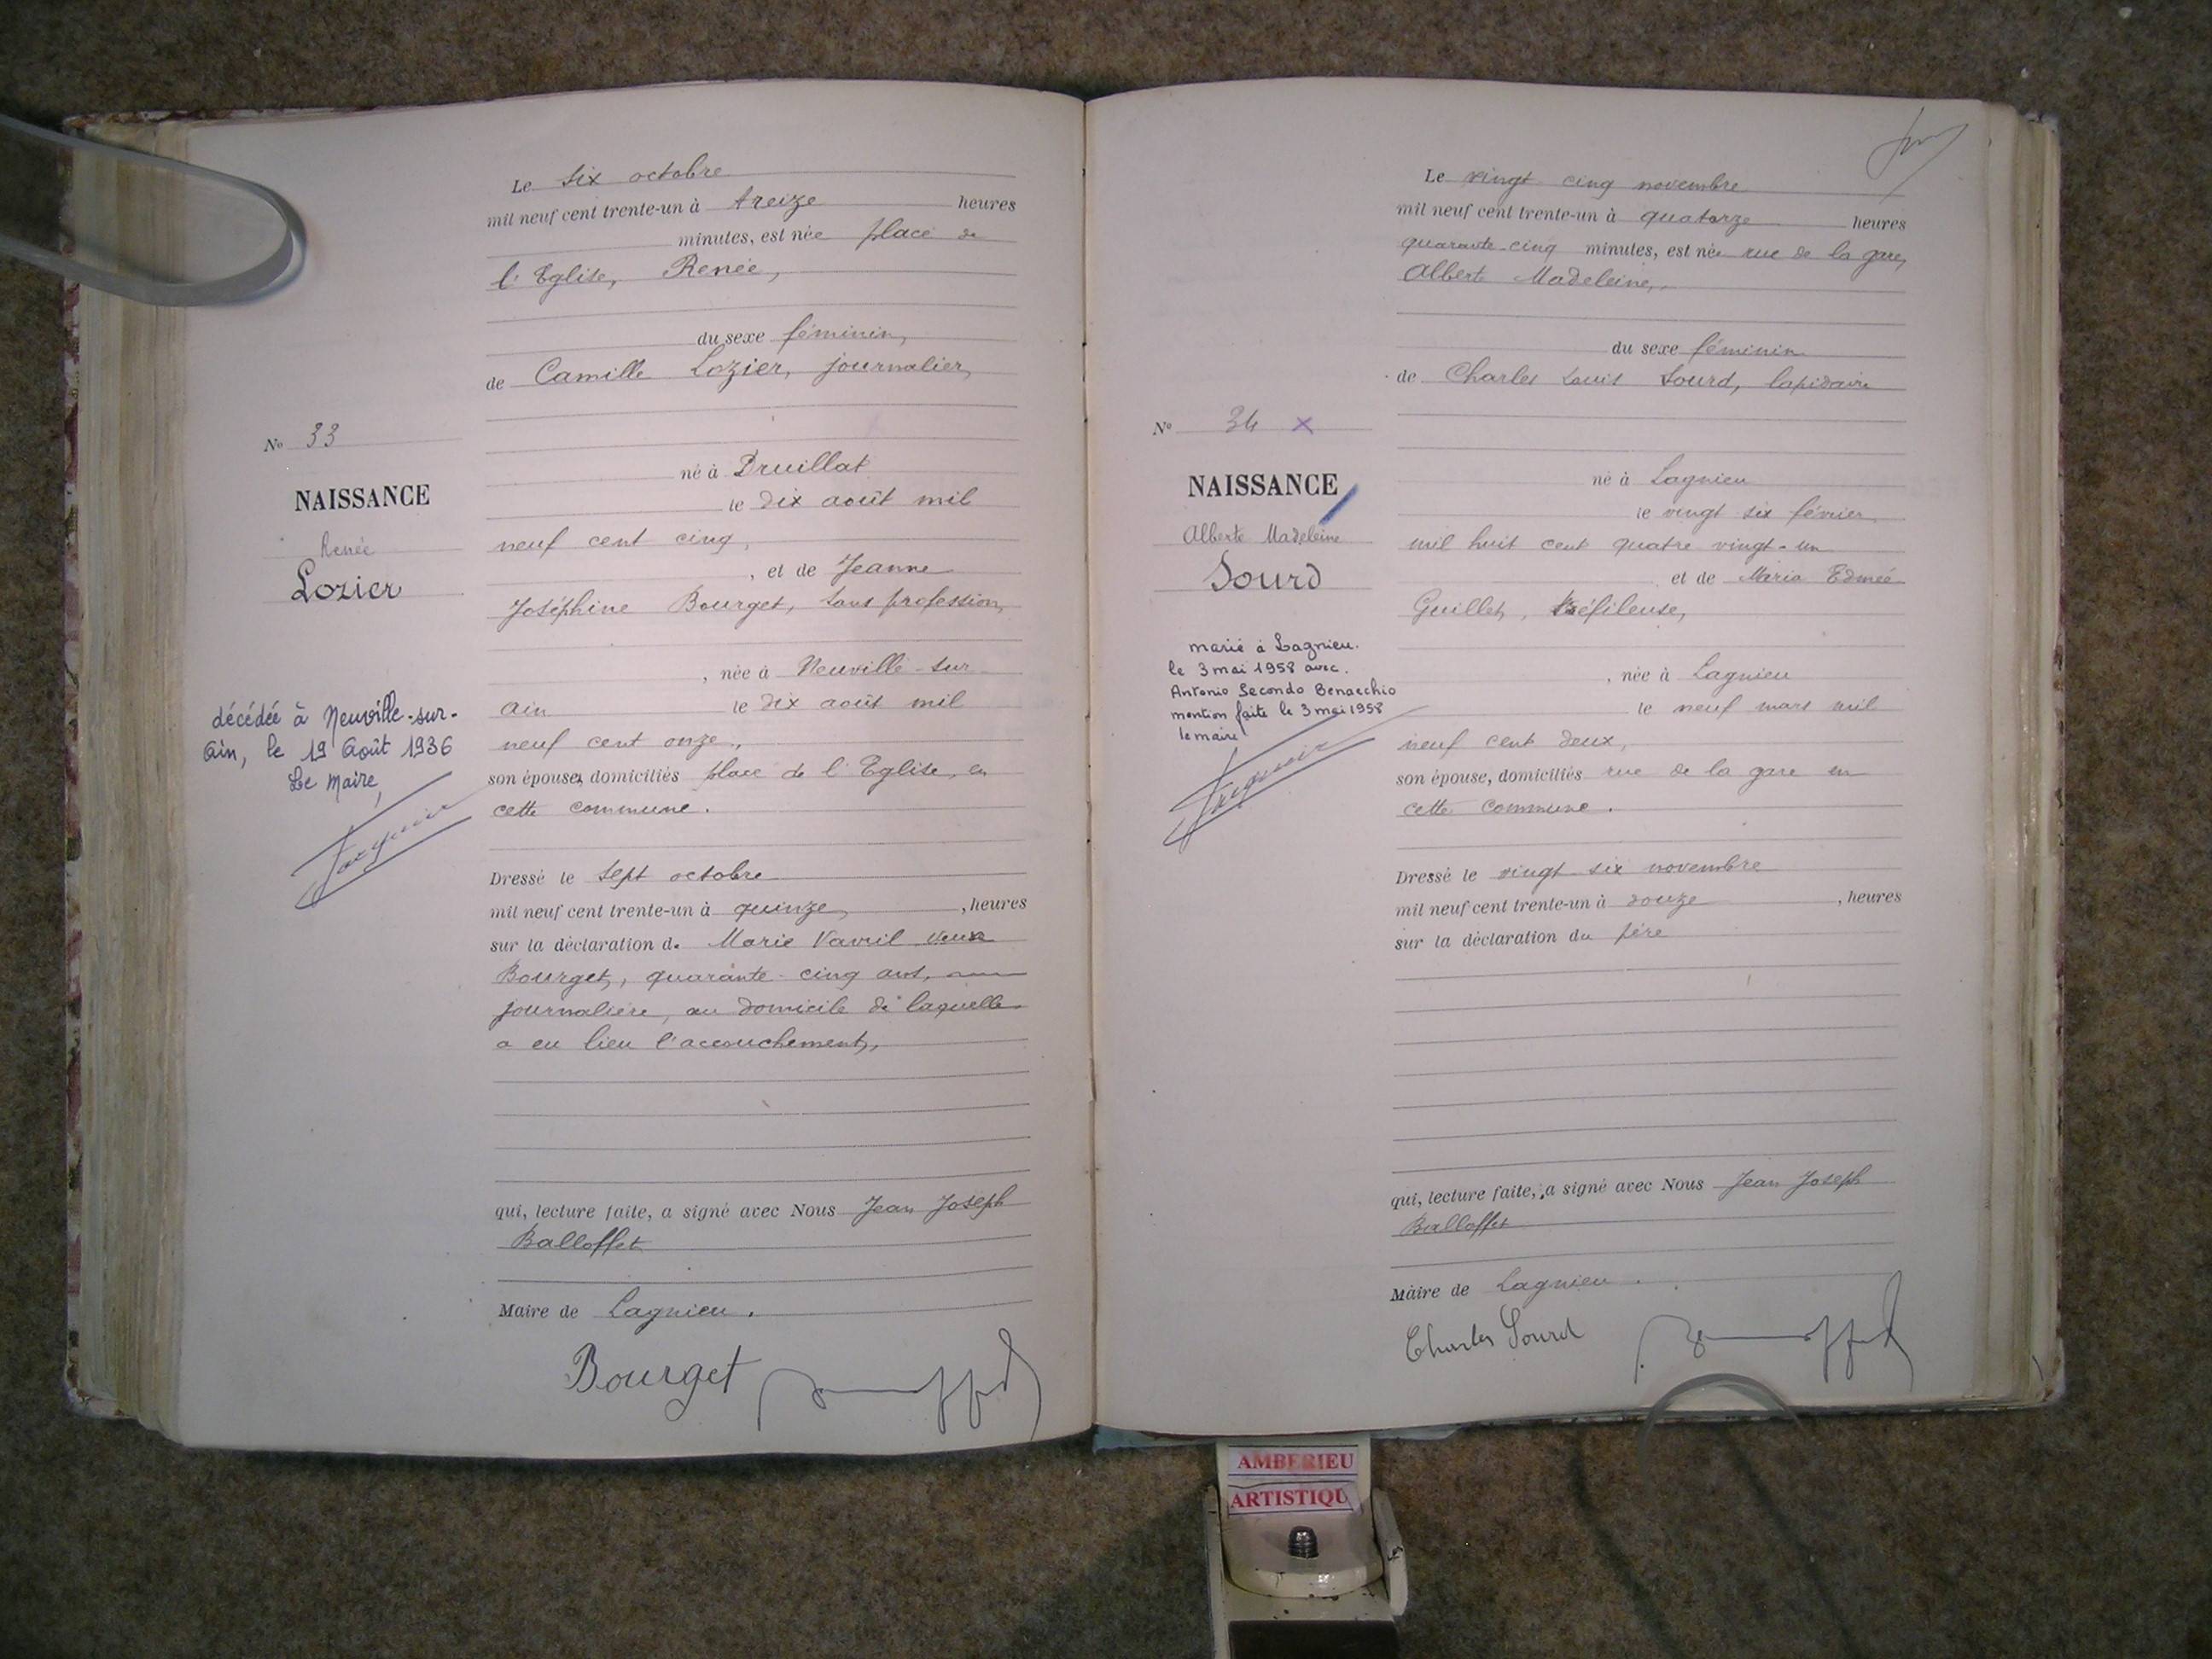 Le six octobre
mil neuf cent trente-un à treize heures
minutes, est née place de
l'Eglise, Renée,
du sexe féminin,
de Camille Lozier, journalier,
né à Druillat
le dix août mil
neuf cent cinq,
, et de Jeanne
Joséphine Bourget, sans profession,
, née à Neuville-sur-
Ain le dix août mil
neuf cent onze,
son épouse, domiciliés place de l'Eglise, en
cette commune.
Dressé le sept octobre
mil neuf cent trente-un à quinze, heures
sur la déclaration de Marie Vavril veuve
Bourget, quarante-cinq ans,
journalière, au domicile de laquelle
a eu lieu l'accouchement,
qui, lecture faite, a signé avec Nous Jean Joseph
Balloffet
Maire de Lagnieu.
Bourget
No 33
NAISSANCE
Renée
Lozier
décédée à Neuville-sur-
Ain, le 19 Août 1936
Le Maire,
Le vingt cinq novembre
mil neuf cent trente-un à quatorze heures
quarante-cinq minutes, est née rue de la gare,
Alberte Madeleine,
du sexe féminin
de Charles Louis Sourd, lapidaire
né à Lagnieu
le vingt six février
mil huit cent quatre vingt-un
et de Maria Edmée
Guillet, tréfileuse,
, née à Lagnieu
le neuf mars mil
neuf cent deux,
son épouse, domiciliés rue de la gare en
cette commune.
Dressé le vingt six novembre
mil neuf cent trente-un à douze, heures
sur la déclaration du père
qui, lecture faite, a signé avec Nous Jean Joseph
Balloffet
Maire de Lagnieu.
Charles Sourd
No 34 x
NAISSANCE
Alberte Madeleine
Sourd
marié à Lagnieu.
le 3 mai 1958 avec.
Antonio Secondo Benacchio
mention faite le 3 mai 1958
le maire
AMBERIEU
ARTISTIQU